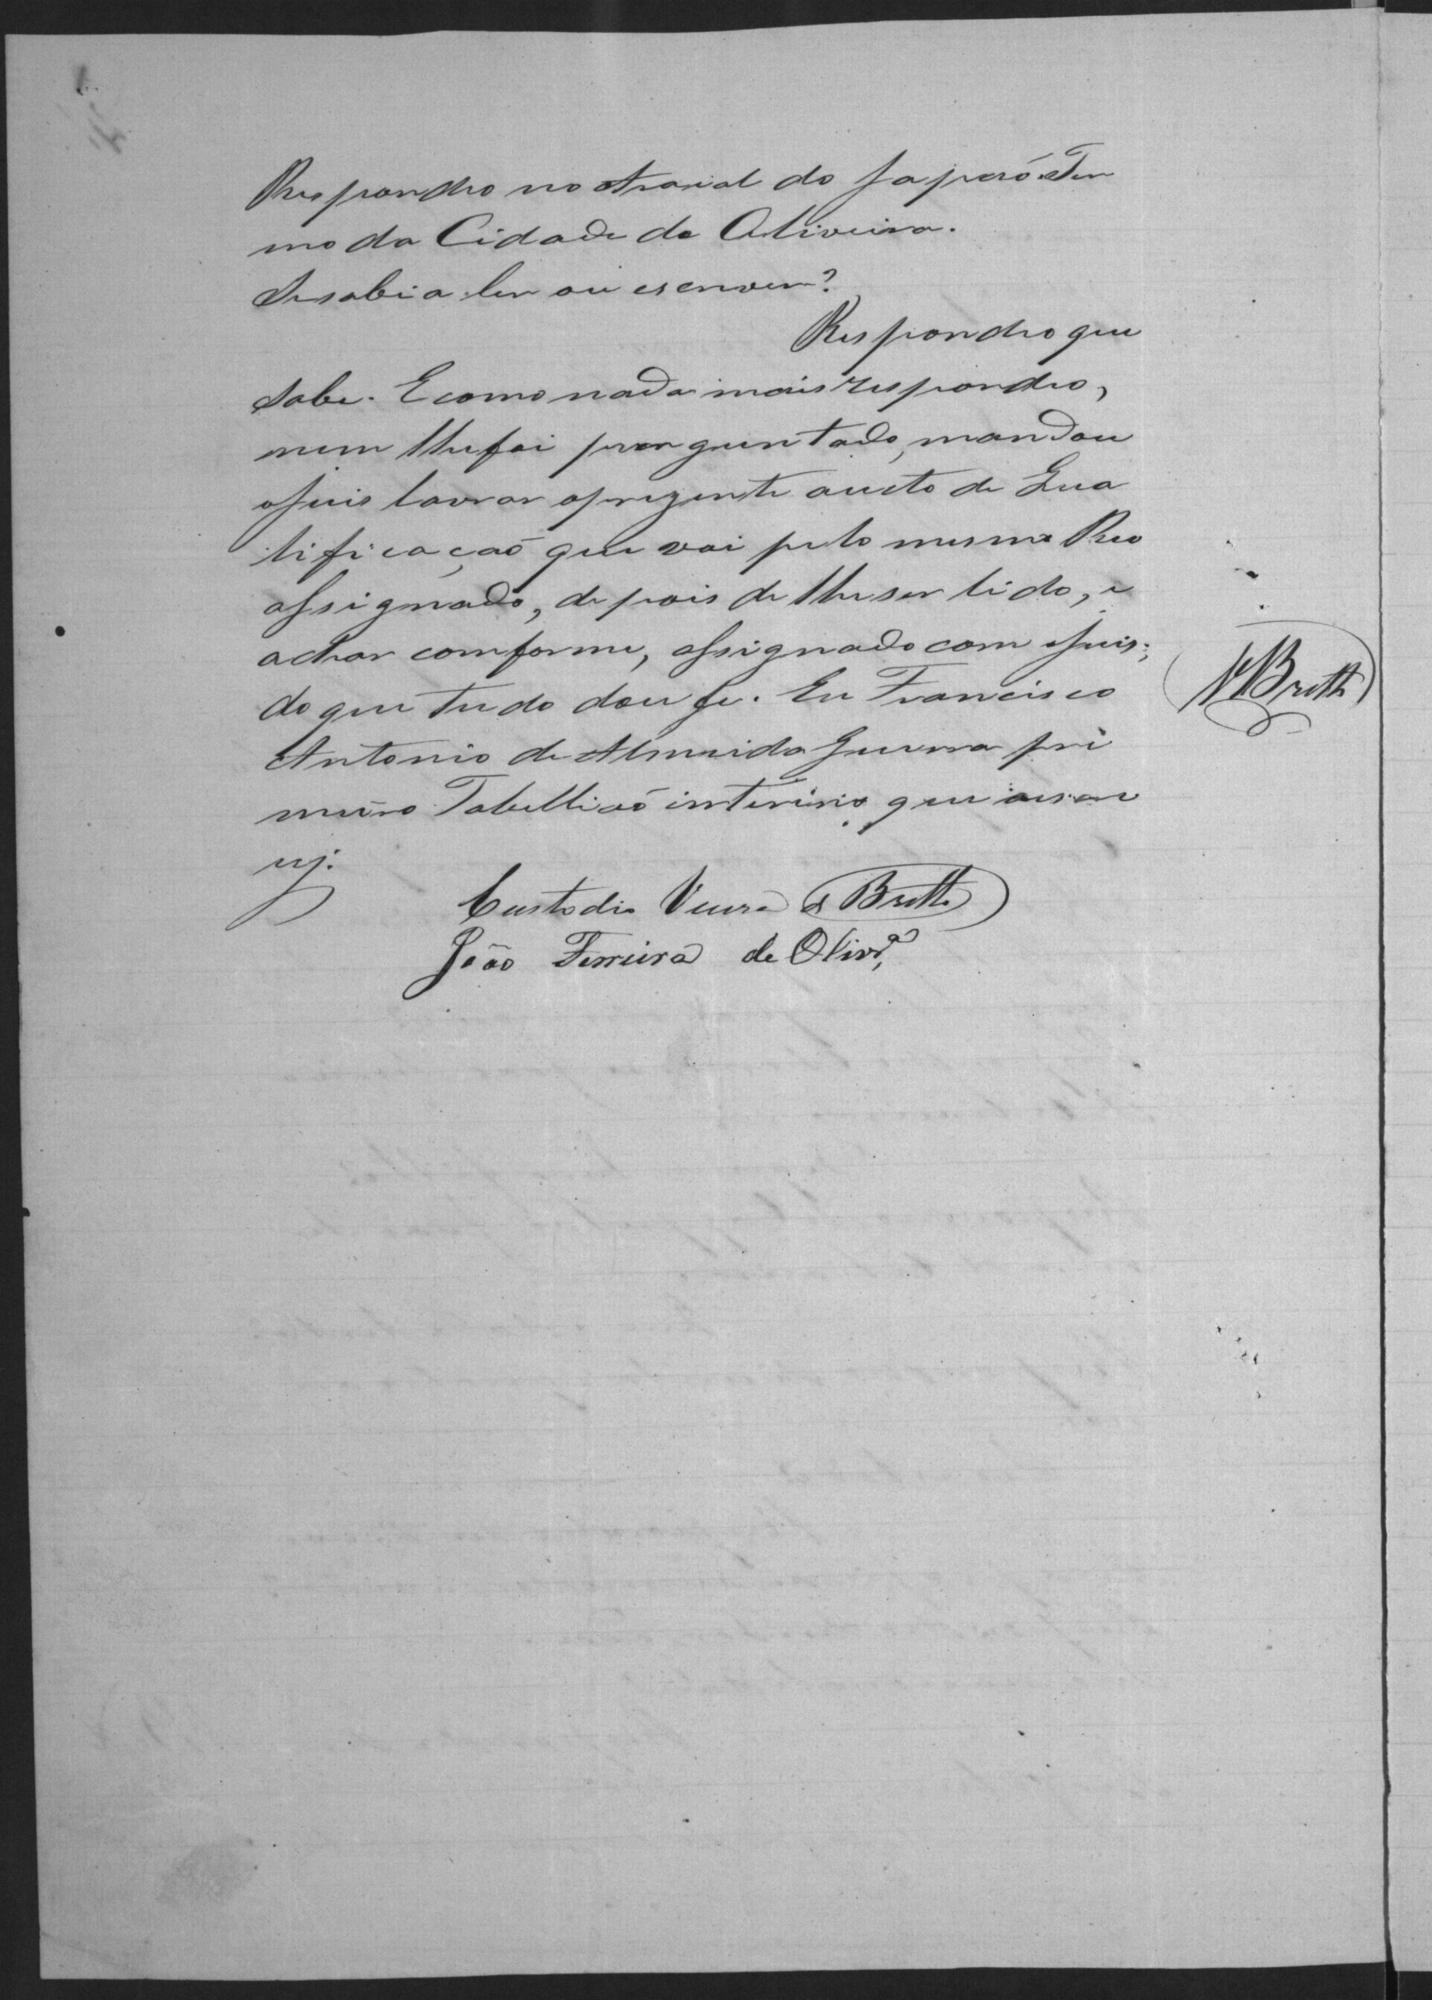 Respondeo no Arraial do Japaó Ter
mo da Cidade de Oliveira.
Se sabia ler ou escrever?
Respondeo que
sabe. E como nada mais respondeo,
nem lhe foi perguntado, mandou
o Juis lavrar o prezente aucto de Qua
lificaçaõ que vai pelo mesmo Reo
assignado, de pois de lhe ser lido, e
achar comforme, assignado com o Juis;
do que tudo dou fe. Eu Francisco
Antonio de Almeida Guerra pri
meiro Tabelliaõ interino que o escre
vj.
Custodio Vieira de Britto
João Ferreira de Olivrª
VBritto